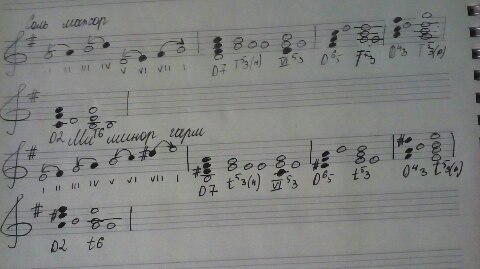 Соль мажор
I II III IV V VI VII I D7 T5/3(н) VI5/3 D6/5 T5/3 D4/3 T5/3(р)
D2 T6
Ми минор гарм
I II III IV V VI VII I D7 t5/3(н) VI5/3 D6/5 t5/3 D4/3 t5/3(р)
D2 t6